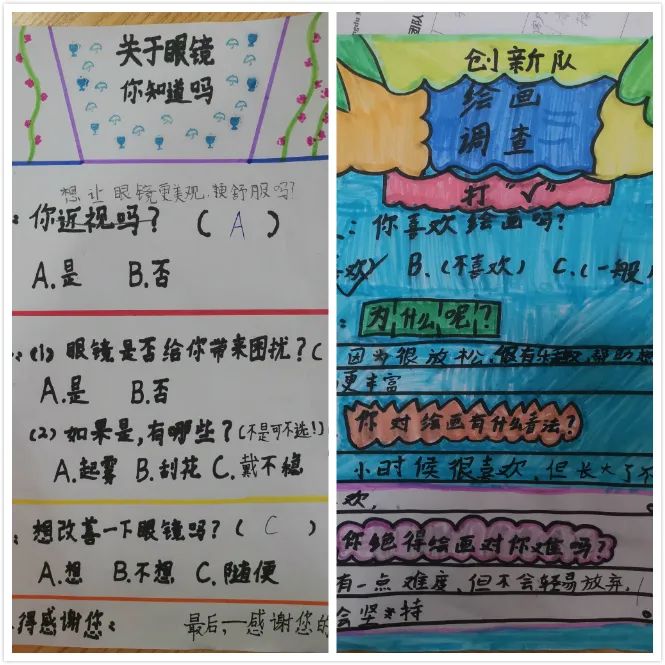 关于眼镜
你知道吗
想让眼镜更美观,更舒服吗?
: 你近视吗? ( A )
A.是 B.否
: (1) 眼镜是否给你带来困扰? (
A.是 B.否
(2) 如果是,有哪些? (不是可不选!)
A.起雾 B.刮花 C.戴不稳
: 想改善一下眼镜吗? ( C )
A.想 B.不想 C.随便
得感谢您:
最后,一感谢您的
创新队
绘画
调查
打“√”
: 你喜欢绘画吗?
欢) B.(不喜欢) C.(一般
: 为什么呢?
因为很放松,很有乐趣,帮助
更丰富
你对绘画有什么看法?
小时候很喜欢,但长大了不
欢,
你绝得绘画对你难吗?
有一点难度,但不会轻易放弃,
会坚持